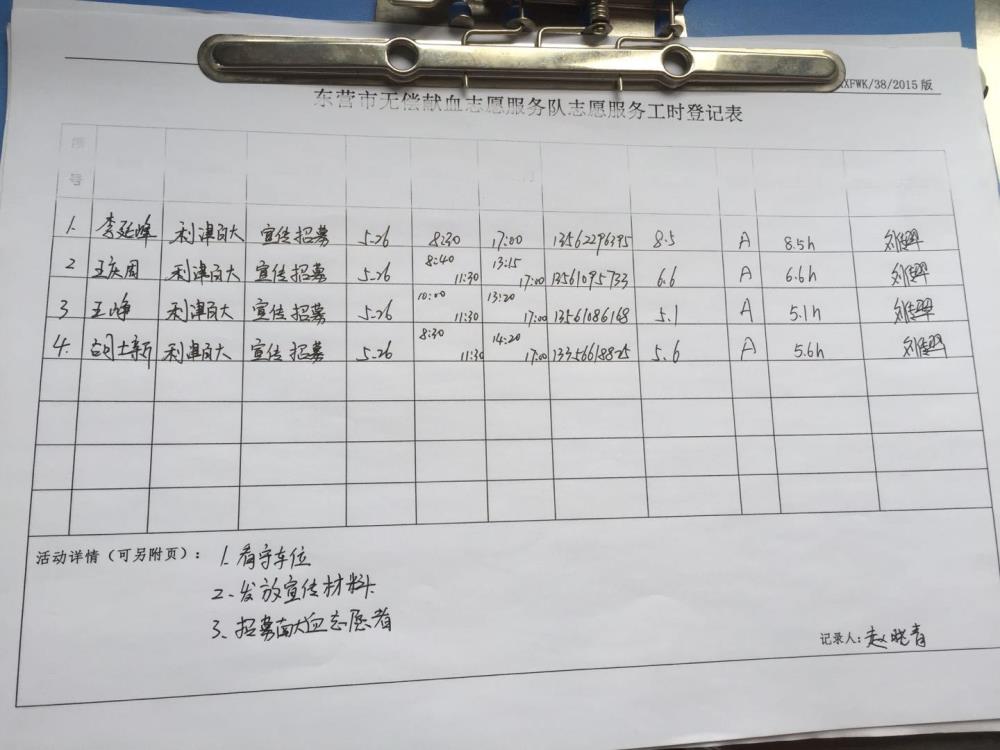 XFWK/38/2015版
东营市无偿献血志愿服务队志愿服务工时登记表
序号
1. 李延峰 利津百大 宣传招募 5.26 8:30 17:00 13562296395 8.5 A 8.5h
2 王庆周 利津百大 宣传招募 5.26 8:40 11:30 13:15 17:00 13561095733 6.6 A 6.6h
3 王峥 利津百大 宣传招募 5.26 10:00 11:30 13:20 17:00 13561086168 5.1 A 5.1h
4. 士新 利津百大 宣传招募 5.26 8:30 11:30 14:20 17:00 13356618825 5.6 A 5.6h
活动详情（可另附页）： 1.看守车位
2、发放宣传材料
3、招募献血志愿者
记录人：赵晓青